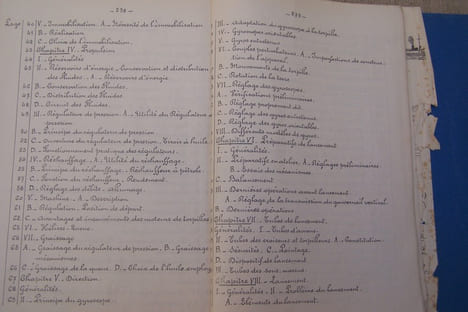 - 232 -
Page
40 V. Immobilisation. A. Nécessité de l'immobilisation
41 B. Réalisation
42 C. Choix de l'immobilisation.
43 Chapitre IV. Propulsion
44 I. Généralités
45 II. Réservoirs d'énergie. Conservation et distribution
des fluides. A. Réservoirs d'énergie.
46 B. Conservation des Fluides
47 C. Distribution des Fluides
48 D. Circuit des Fluides
49 III. Régulateur de pression. A. Utilité du Régulateur de
pression
50 B. Principe du régulateur de pression.
52 C. Ouverture du régulateur de pression. Tiroir à huile
53 D. Fonctionnement pratique des régulateurs.
54 IV. Réchauffage. A. Utilité du réchauffage.
55 B. Principe du réchauffage. Réchauffeurs à pétrole
57 C. Réaction du réchauffeur. Rendement
58 D. Réglage des débits. Allumage
60 V. Machines. A. Description
61 B. Régulation. Position de départ.
62 C. Avantages et inconvénients des moteurs de torpilles
63 VI. Hélices.
64 VII. Graissage
65 A. Graissage du régulateur de pression. B. Graissage
mécanismes
66 C. Graissage de la queue. D. Choix de l'huile employée
67 Chapitre V. Direction.
68 Généralités.
69 II. Principe du gyroscope.
- 233 -
III. Adaptation du gyroscope à la torpille.
IV. Gyroscopes orientables.
V. Gyros entretenus
VI. Couples perturbateurs. A. Imperfections de construction
de l'appareil.
B. Mouvements de la torpille.
C. Rotation de la terre
VII. Réglage des gyroscopes.
A. Vérifications préliminaires.
B. Réglage proprement dit.
C. Réglage des gyros entretenus.
D. Réglage des gyros orientables.
VIII. Différents modèles de gyros.
Chapitre VI. Préparatifs de lancement
I. Généralités.
II. Préparatifs en atelier. A. Réglages préliminaires
B. Essais des mécanismes
C. Balancement
III. Dernières opérations avant lancement
A. Réglage de la transmission du gouvernail vertical.
B. Dernières opérations.
Chapitre VII. Tubes de lancement.
Généralités. I. Tubes d'avions.
II. Tubes des croiseurs et torpilleurs. A. Constitution.
B. Sécurités. C. Pointage.
D. Dispositif de lancement
III. Tubes des sous-marins.
Chapitre VIII. Lancement.
I. Généralités. II. Problème du lancement.
A. Éléments du lancement.